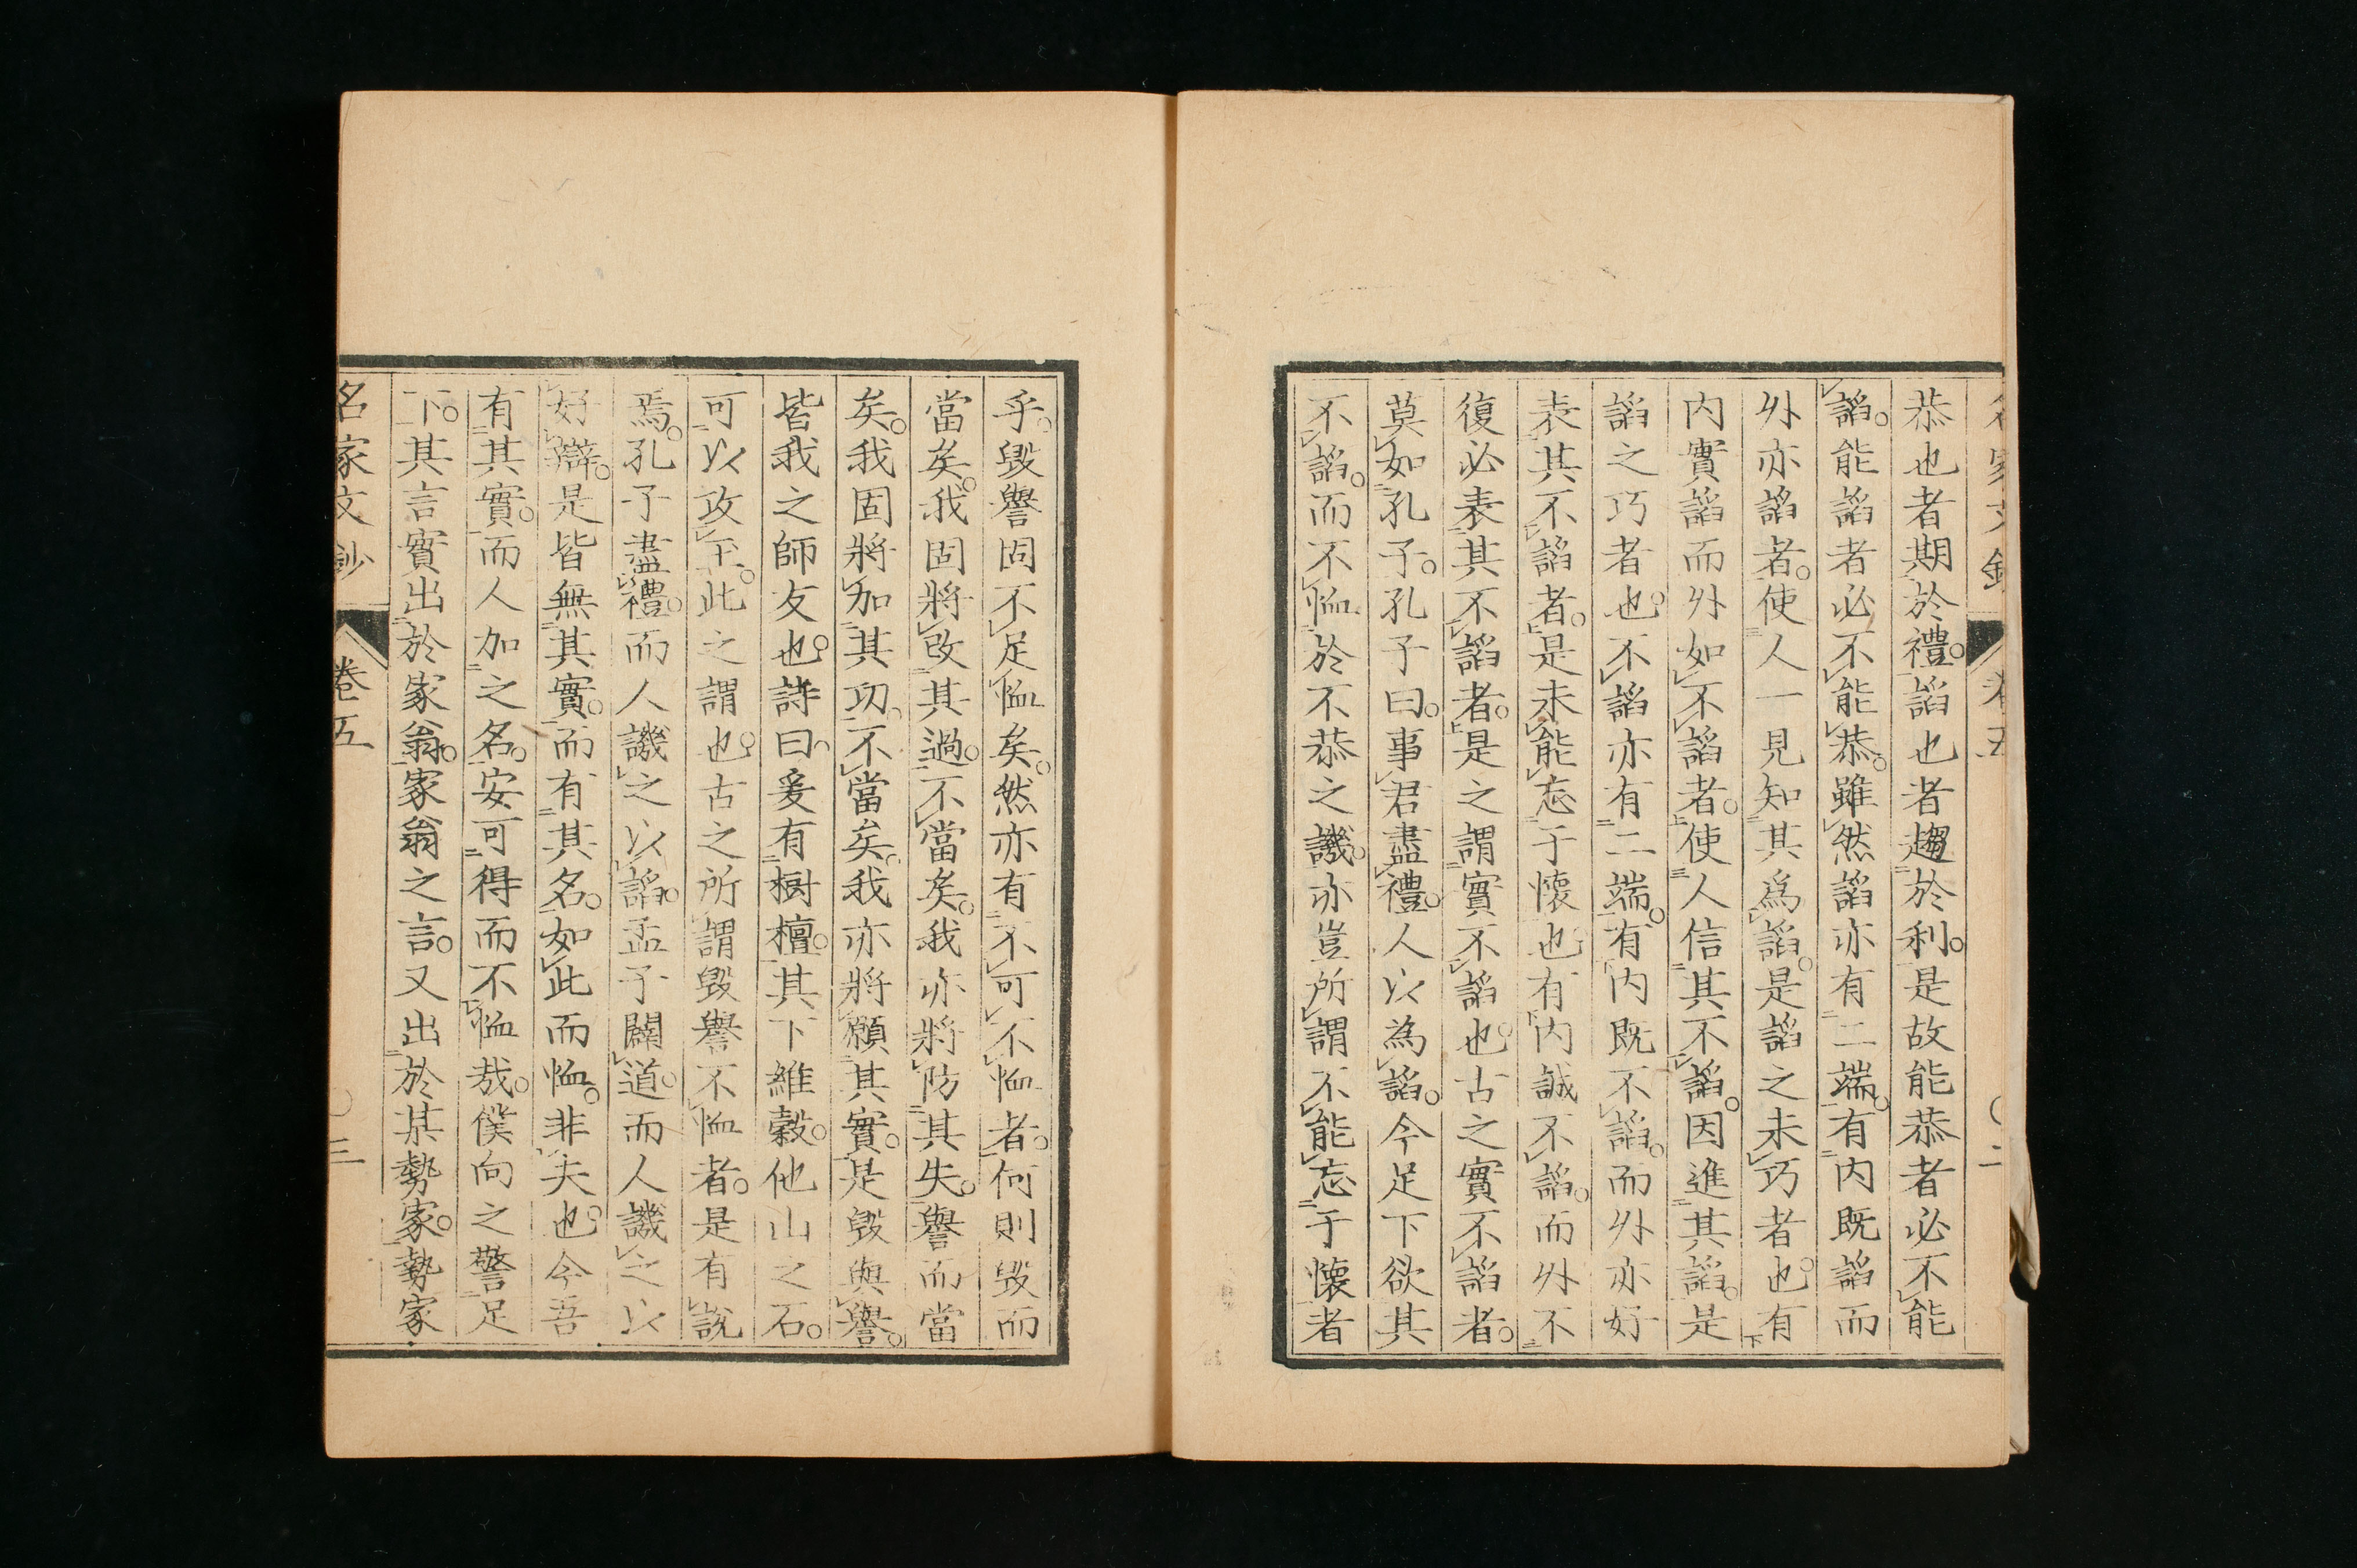 恭也者期於禮。諂也者趨於利。是故能恭者必不能
諂。能諂者必不能恭。雖然諂亦有二端。有內既諂而
外亦諂者。使人一見知其爲諂。是諂之未巧者也。有
内實諂而外如不諂者。使人信其不諂。因進其諂。是
諂之巧者也。不諂亦有二端。有内既不諂。而外亦好
表其不諂者。是未能忘于懷也。有内誠不諂。而外不
復必表其不諂者。是之謂實不諂也。古之實不諂者。
莫如孔子。孔子曰。事君盡禮。人以為諂。今足下欲其
不諂。而不恤於不恭之譏。亦豈所謂不能忘于懷者
乎。毀譽固不足恤矣。然亦有不可不恤者。何則毀而
當矣。我固將改其過。不當矣。我亦將防其失。譽而當
矣。我固將加其功。不當矣。我亦將顧其實。是毀與譽。
皆我之師友也。詩曰。爰有樹檀。其下維榖。他山之石。
可以攻玉。此之謂也。古之所謂毀譽不恤者。是有説
焉。孔子盡禮。而人譏之以諂。孟子闢道。而人譏之以
好辯。是皆無其實。而有其名。如此而恤。非夫也。今吾
有其實。而人加之名。安可得而不恤哉。僕向之警足
下。其言實出於家翁。家翁之言。又出於某勢家。勢家
名家文鈔
卷五
〇三